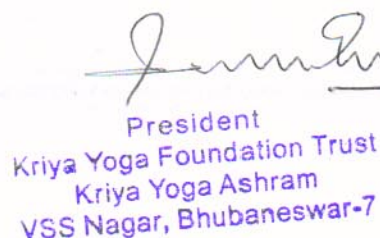 President
Kriya Yoga Foundation Trust
Kriya Yoga Ashram
VSS Nagar, Bhubaneswar-7